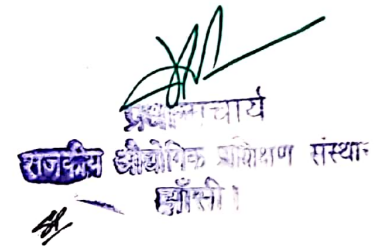 प्रधानाचार्य
राजकीय औद्योगिक प्रशिक्षण संस्थान
झाँसी।